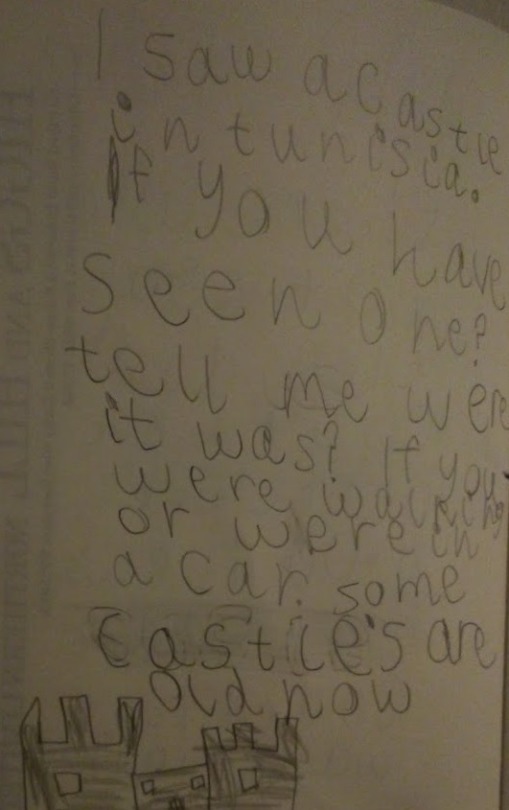 I saw a castle
in tunisia.
If you have
seen one?
tell me were
it was? If you
were walking
or were in
a car. some
castle's are
old now